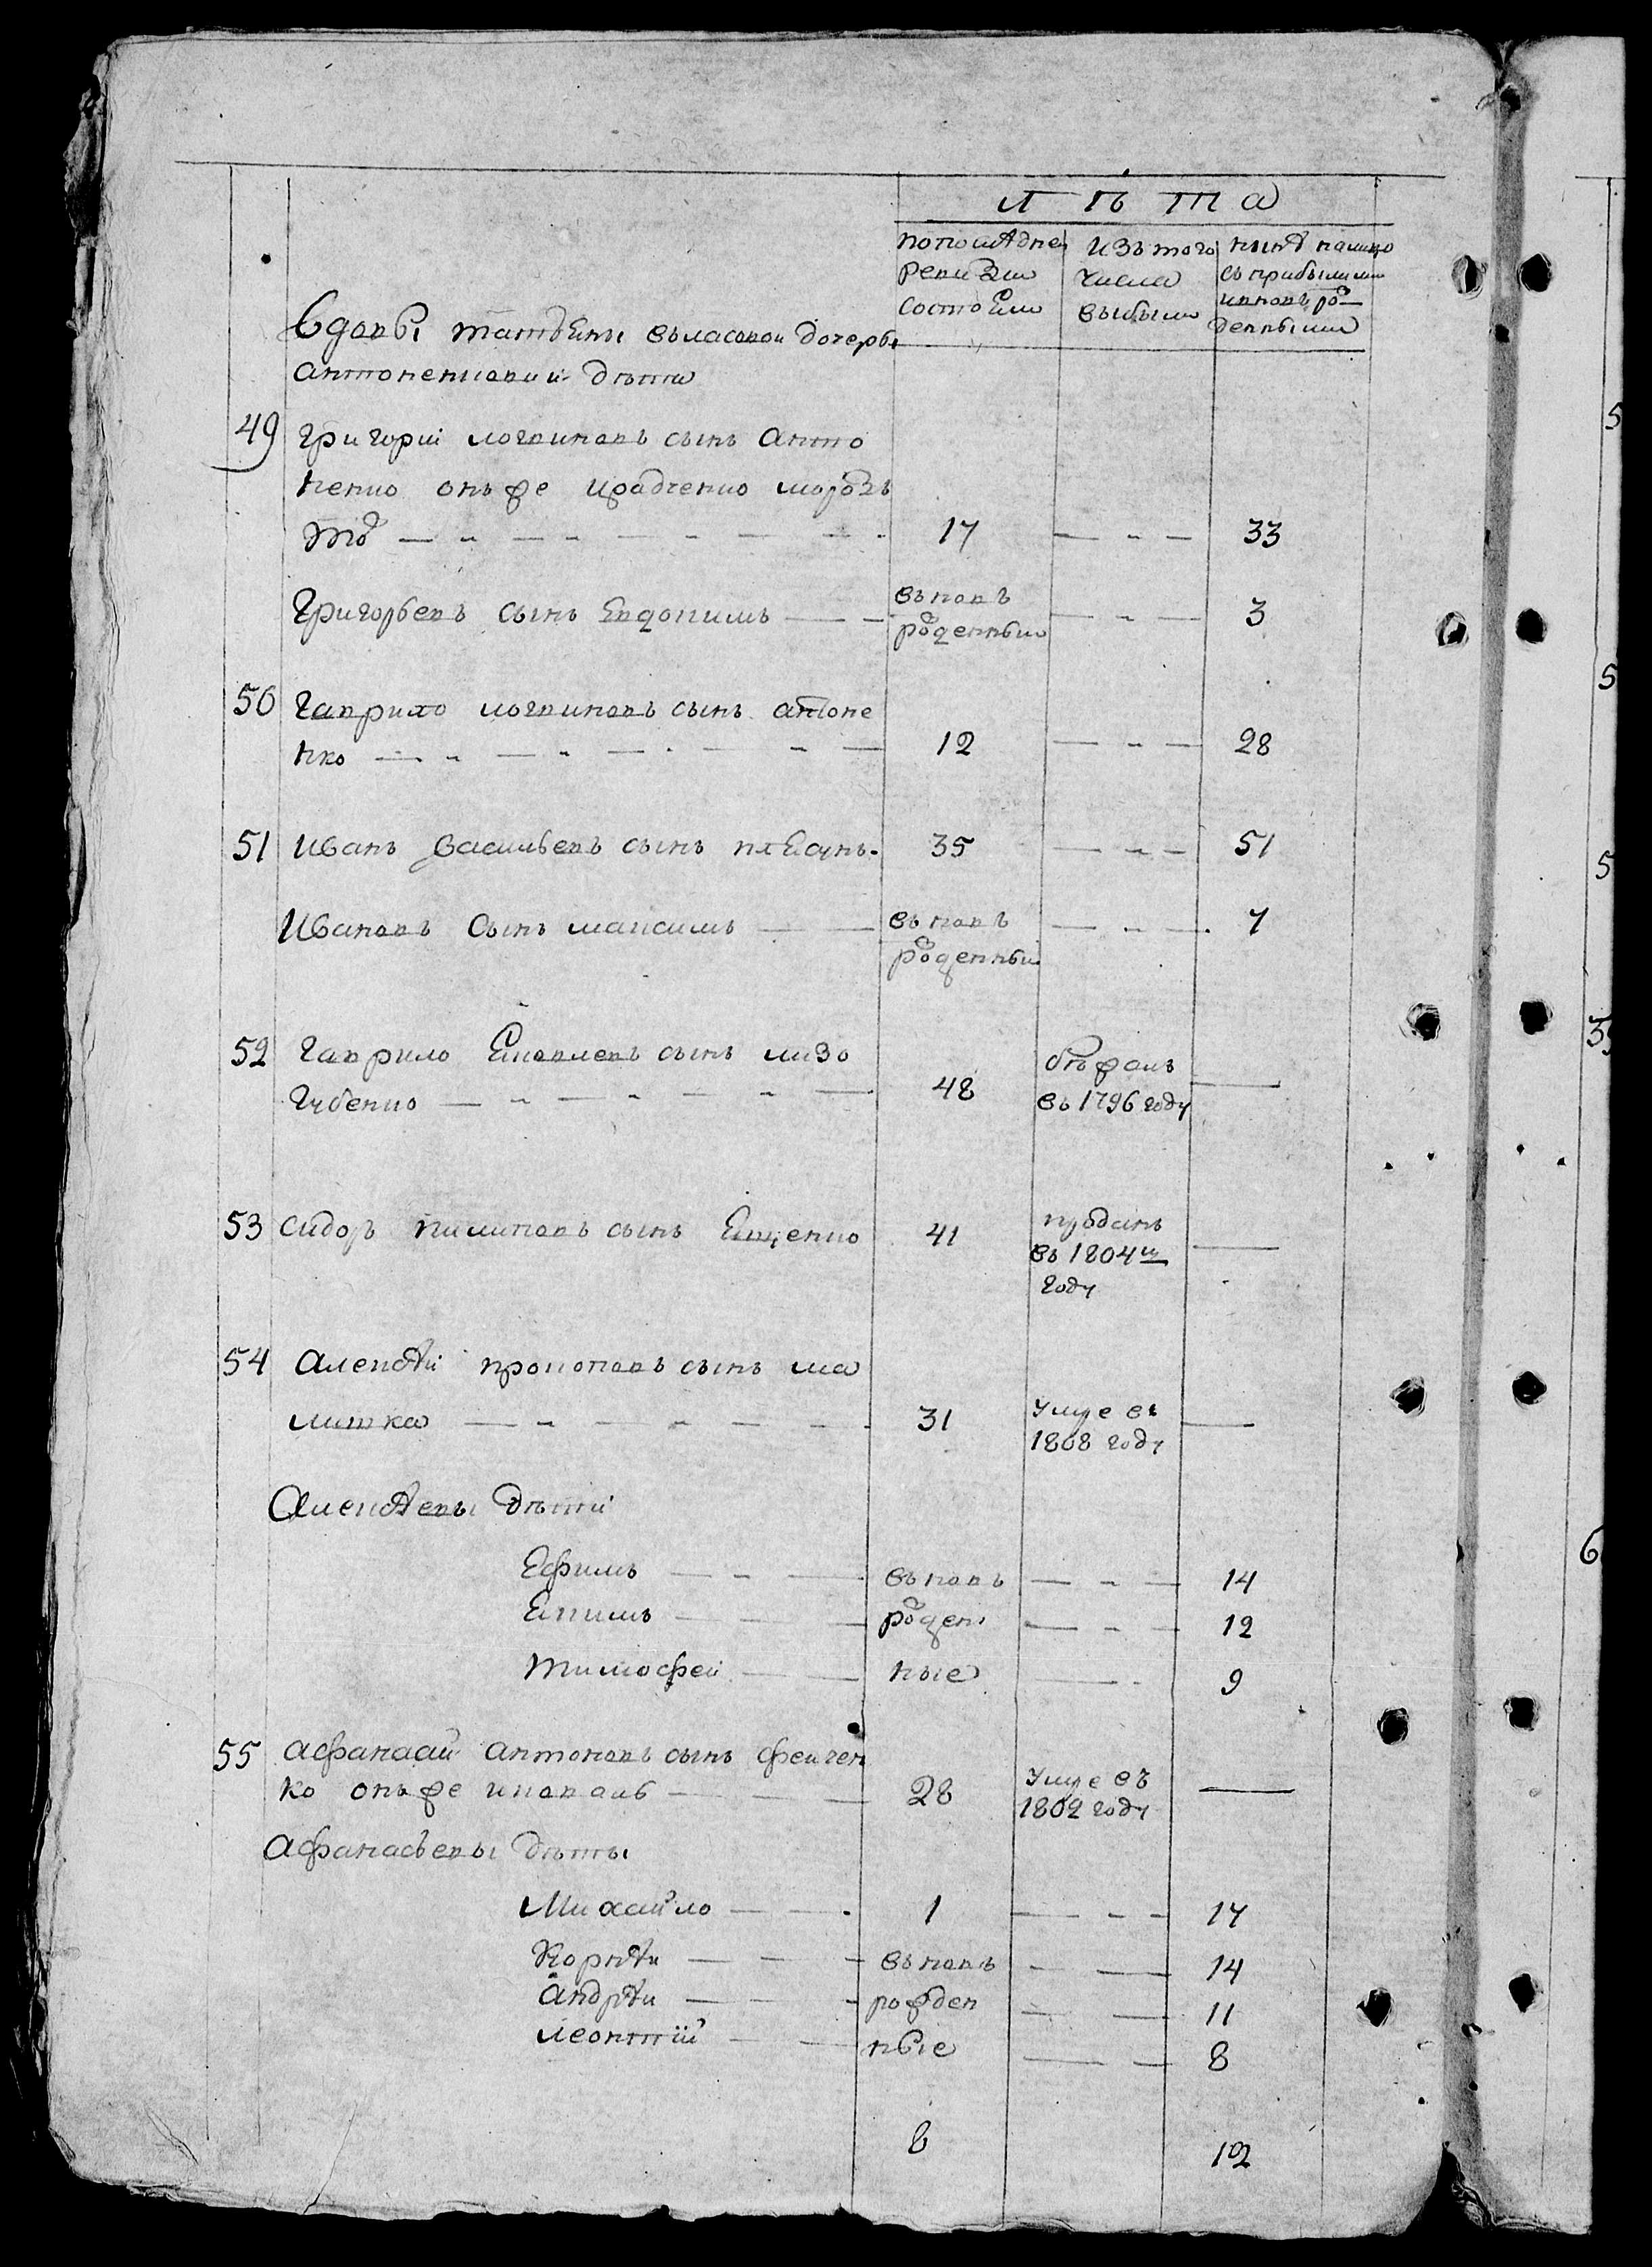 лѣта
попослѣдней
ревизіи
состоѣли
изъ того
числа
выбыли
нынѣ налицо
съ прибылыми
ивновь ро
денными
Вдовы татьѣны власовой дочеры
антоненковой дѣти
49 григорій логвиновъ сынъ анто
ненко онъ же морозъ
тоже 17 33
Григорьевъ сынъ Евдокимъ вновь рожденныи 3
50 Гаврило логвиновъ сынъ антоне
нко 12 28
51 Иванъ Васильевъ сынъ 35 51
Ивановъ сынъ максимъ вновь рожденныи 7
52 Гаврило Ековлевъ сынъ
Губенко 48 бѣжалъ въ 1796 году
53 Сидоръ пилиповъ сынъ Ещенко 41 проданъ въ 1804м году
54 Алексѣй прокоповъ сынъ ма
литка 31 умре въ 1808 году
Алексѣевы дѣти
Ефимъ вновь 14
Екимъ рожден 12
тимофей ные 9
55 афанасий антоновъ сынъ фейчен
ко онъ же коваль 28 умре въ 1802 году
Афанасьевы дѣты
Михайло 1 17
Корнѣи вновь 14
Андрѣи рожден 11
леонтій ные 8
8 102